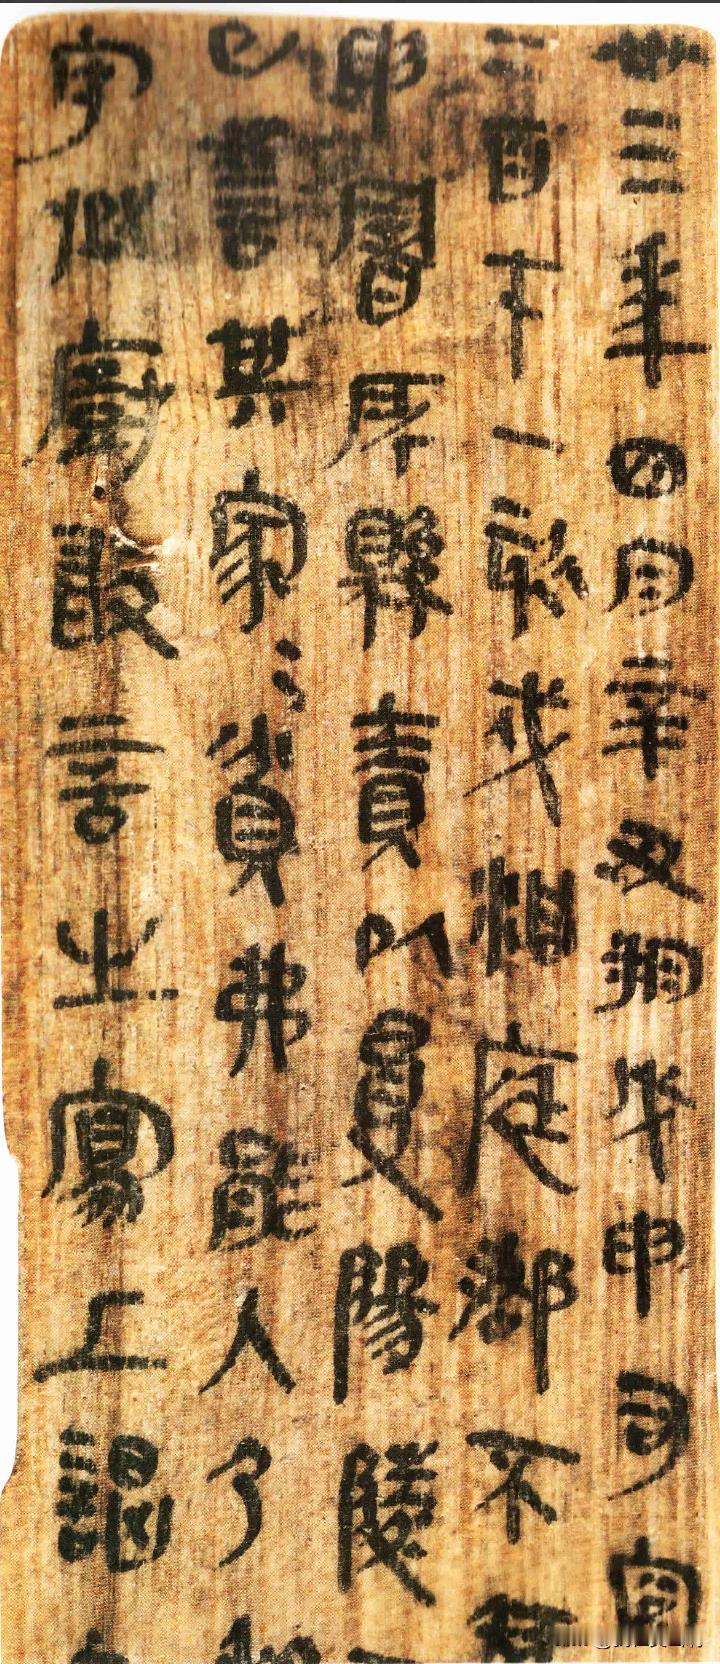 卅三年四月辛丑朔戊申司空
三百一衍戍洞庭郡不
署所縣責以受陽陵
已訾其家=貧弗能入乃
守丞廚敢言之寫上謁